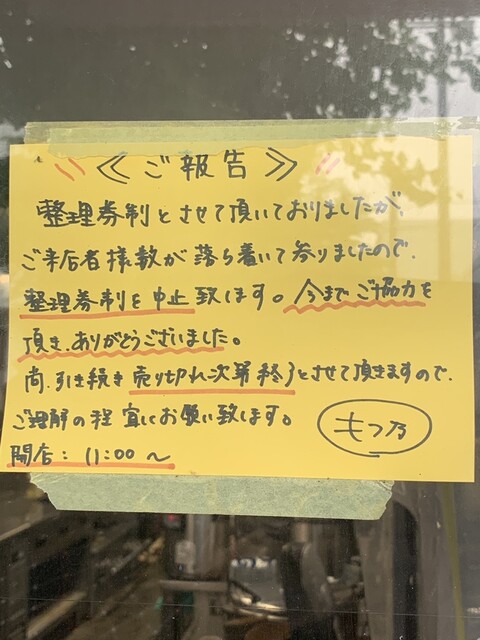 ≪ご報告≫
整理券制とさせて頂いておりましたが、
ご来店者様数が落ち着いて参りましたので、
整理券制を中止致します。今までご協力を
頂き、ありがとうございました。
尚、引き続き売り切れ次第終了とさせて頂きますので、
ご理解の程宜しくお願い致します。
もつ乃
開店：11:00～